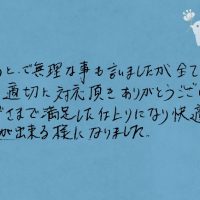 っと、で無理な事も言いましたが、全て
適切に対応頂きありがとうござ
げさまで満足した仕上りになり快適
が出来る様になりました。